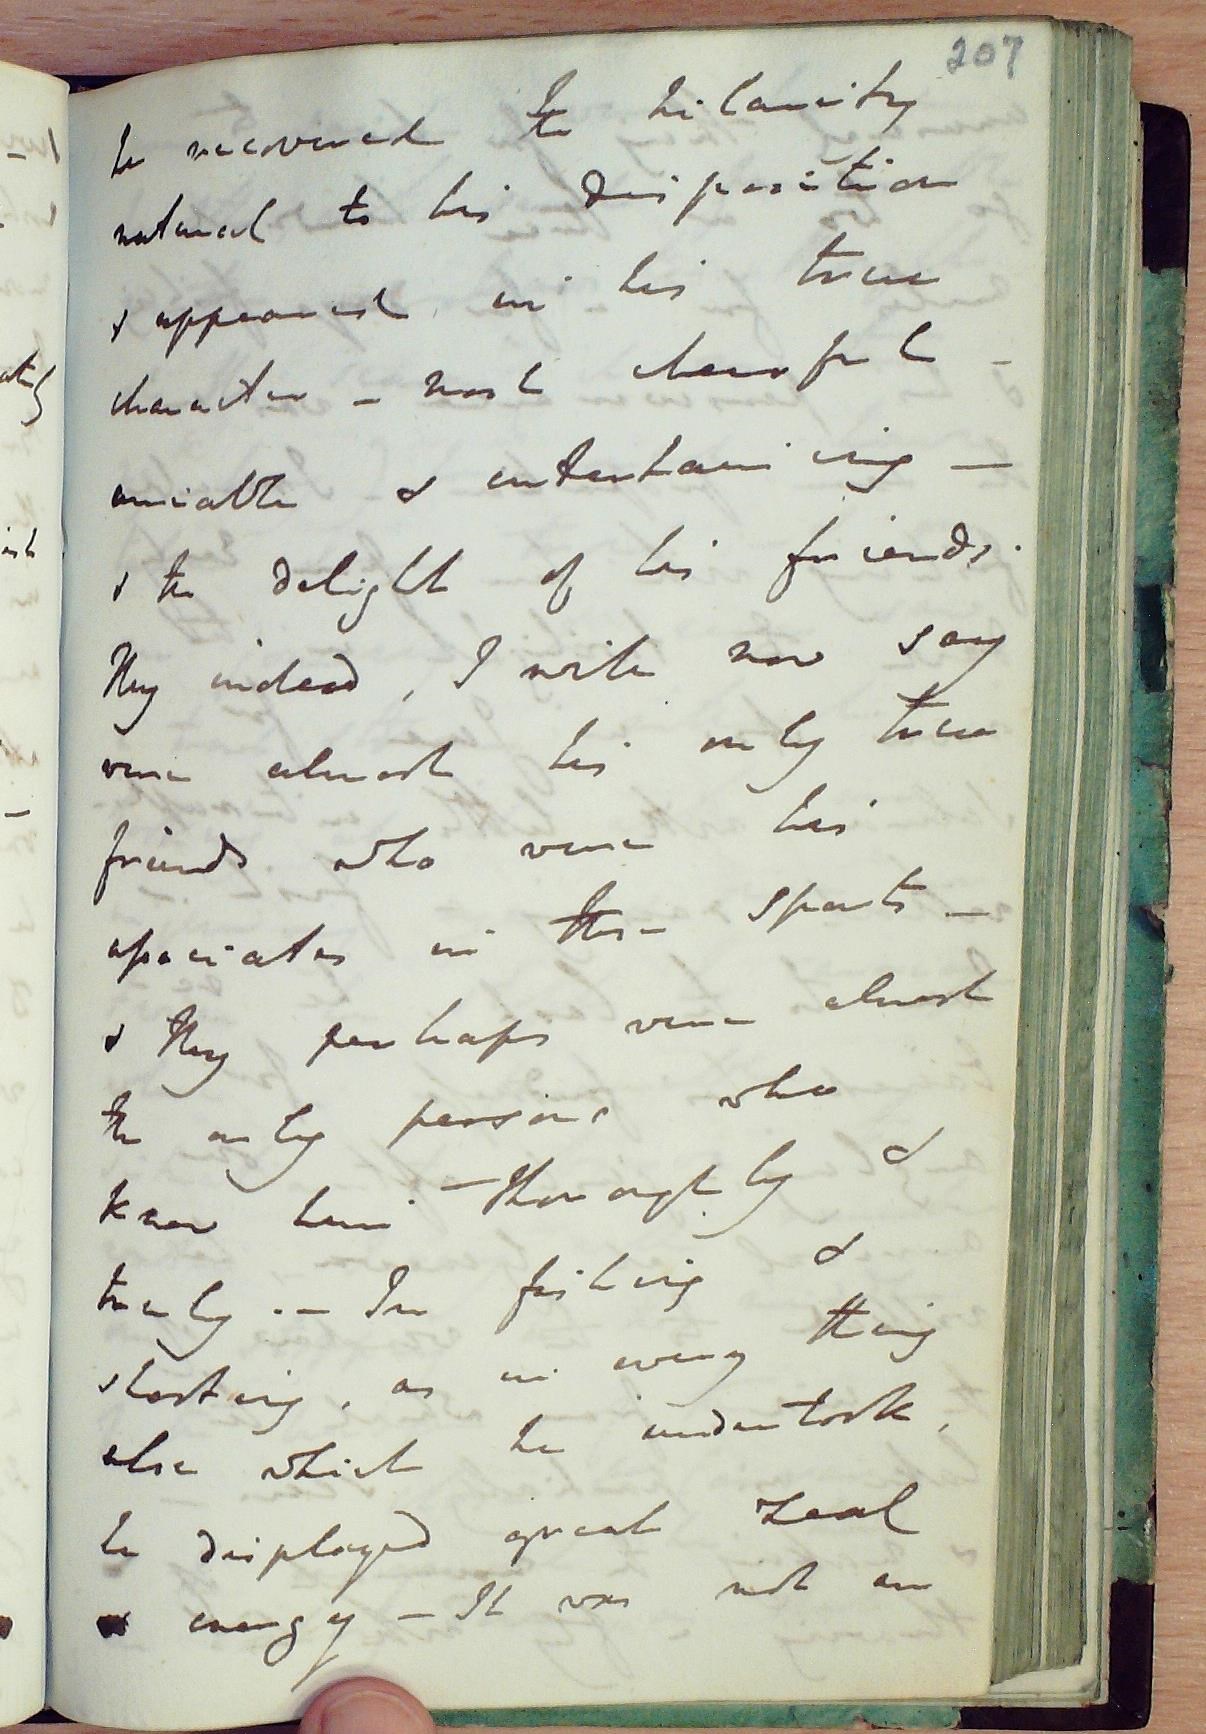 207
he recovered the hilarity
natural to his disposition
& appeared in his true
character – most chearful –
amiable & entertaining –
& the delight of his friends.
They indeed, I will now say
were almost his only true
friends who were his
associates in these sports –
& they perhaps were almost
the only persons who
knew him – thoroughly &
truly. – In fishing &
shooting, as in every thing
else which he undertook,
he displayed great zeal
& energy – It was not an